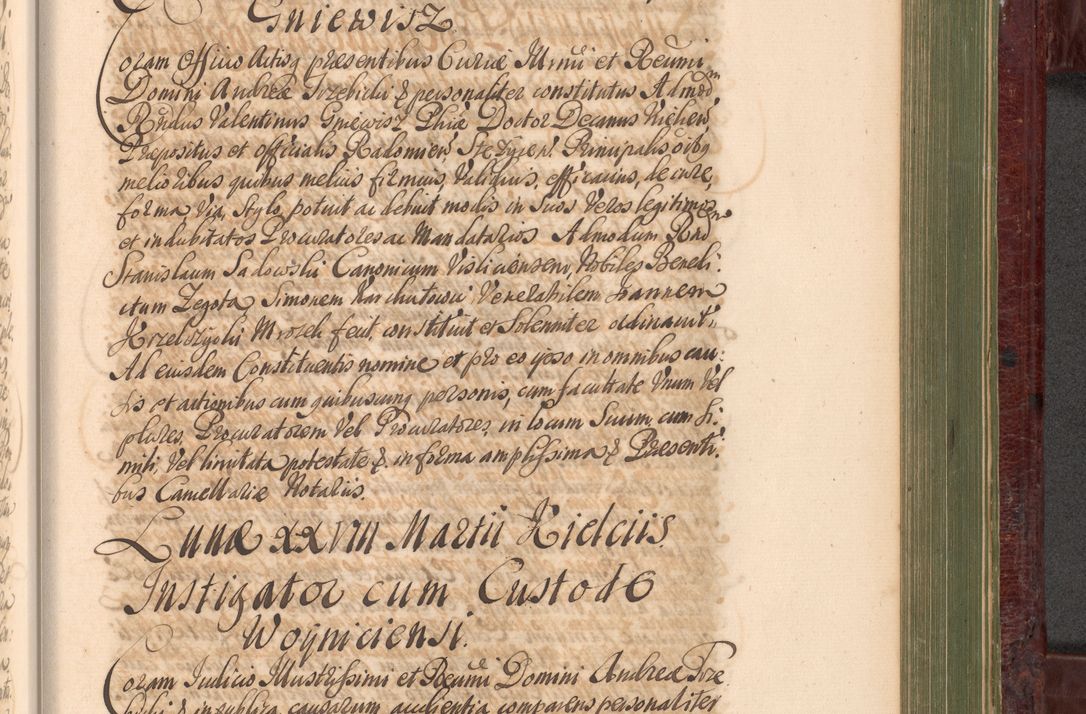 Gniewisz
Coram Officio Actisq presentibus Curiæ Illmi et Reumi
Domini Andreæ Trzebicki & personaliter constitutus Admod
Rndus Valentinus Gniewisz Phiæ Doctor Decanus
Præpositus et officialis Radomien Stezycen Principalis oibq
melioribus quibus melius firmius, validius, efficacius, de iure,
forma via, stylo, potuit ac debuit modis in suos veros legitimos
et indubitatos Procuratores ac Mandatarios Admodum Rnd
Stanislaum Sadowski Canonicum Visliciensem, Nobiles Benedi-
ictum Zegota, Simonem Venerabilem Joannem
Mrozek fecit, constituit et solenniter ordinavit,
Ad eiusdem Constituentis nomine et pro eo ipso in omnibus cau:
sis et actionibus cum quibuscunq personis, cum facultate Vnum Vel
plures, Procuratorem Vel Procuratores, in locum Suum, cum si:
mili, Vel limitata potestate & in forma amplissima & Præsenti:
bus Cancellariæ Notariis.
Lunæ XXVIII Martii Kielciis
Instigator cum Custode
Woyniciensi.
Coram Iudicio Illustrissimi et Reumi Domini Andreæ Trze
bicki & in publica causarum audientia comparens personaliter